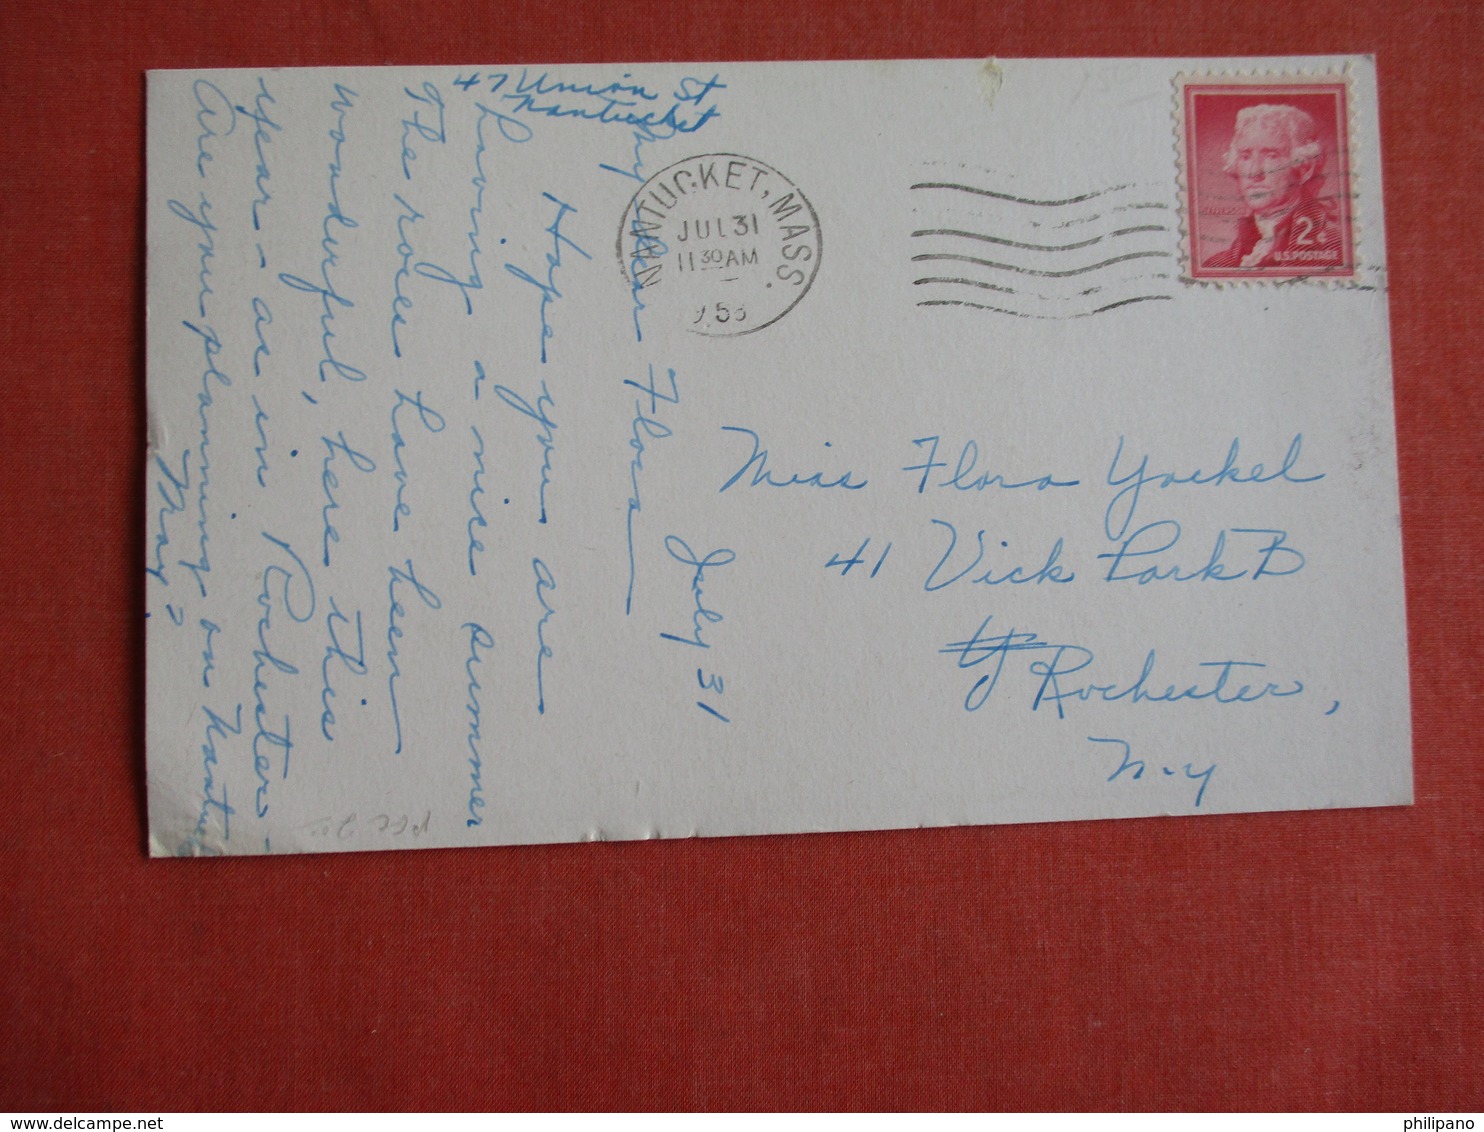 47 Union St
Nantucket
July 31
My dear Flora
Hope you are
having a nice summer
The roses have been
wonderful, here this
year - as in Rochester -
Are you planning on Nantucket
NANTUCKET, MASS.
JUL 31
11 30 AM
Miss Flora Yockel
41 Vick Park B
Rochester,
N-Y
JEFFERSON
2¢
U.S. POSTAGE
philipano
www.delcampe.net